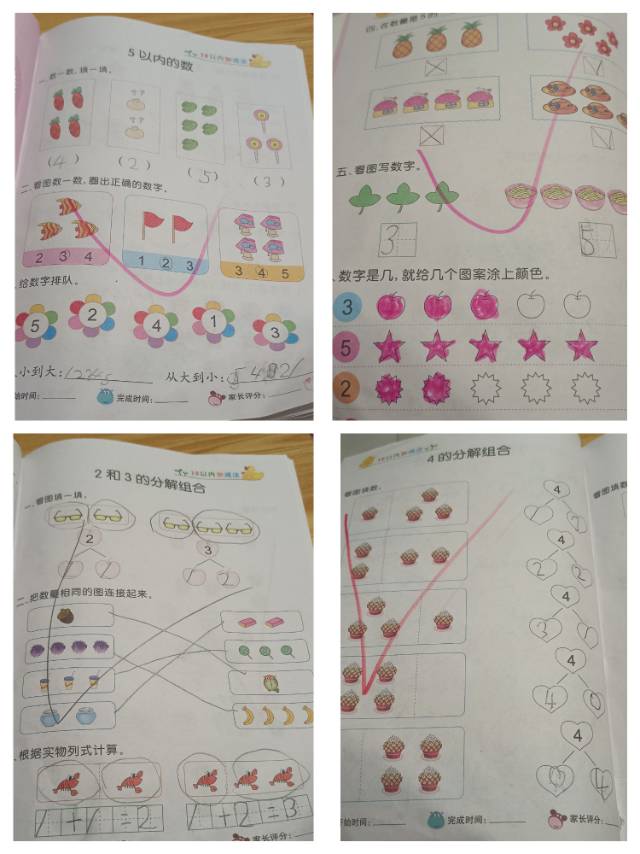 10以内加减法
5 以内的数
一、数一数,填一填。
(4) (2) (5) (3)
二、看图数一数,圈出正确的数字。
2 3 4
1 2 3
3 4 5
给数字排队。
5 2 4 1 3
小到大:
从大到小:
始时间:
完成时间:
家长评分:
四、
五、看图写数字。
3
5
、数字是几,就给几个图案涂上颜色。
3
5
2
10以内加减法
2 和 3 的分解组合
一、看图填一填。
2
3
1 1 1 2
二、把数量相同的图连接起来。
、根据实物列式计算。
1+1=2
1+2=3
家长评分:
10以内加减法
4 的分解组合
看图填数。
看图填数
4
4
2 2
4
3 1
4
4 0
4
0 4
开始时间:
完成时间:
家长评分: